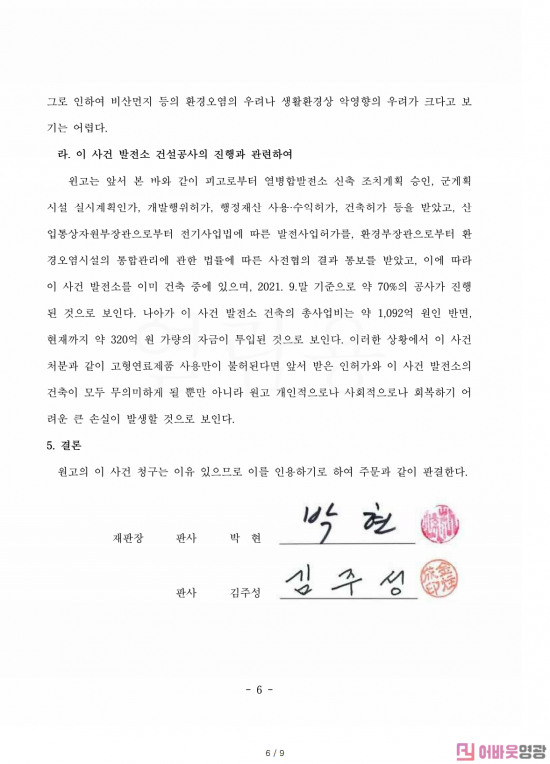 그로 인하여 비산먼지 등의 환경오염의 우려나 생활환경상 악영향의 우려가 크다고 보
기는 어렵다.
라. 이 사건 발전소 건설공사의 진행과 관련하여
원고는 앞서 본 바와 같이 피고로부터 열병합발전소 신축 조치계획 승인, 군계획
시설 실시계획인가, 개발행위허가, 행정재산 사용·수익허가, 건축허가 등을 받았고, 산
업통상자원부장관으로부터 전기사업법에 따른 발전사업허가를, 환경부장관으로부터 환
경오염시설의 통합관리에 관한 법률에 따른 사전협의 결과 통보를 받았고, 이에 따라
이 사건 발전소를 이미 건축 중에 있으며, 2021. 9.말 기준으로 약 70%의 공사가 진행
된 것으로 보인다. 나아가 이 사건 발전소 건축의 총사업비는 약 1,092억 원인 반면,
현재까지 약 320억 원 가량의 자금이 투입된 것으로 보인다. 이러한 상황에서 이 사건
처분과 같이 고형연료제품 사용만이 불허된다면 앞서 받은 인허가와 이 사건 발전소의
건축이 모두 무의미하게 될 뿐만 아니라 원고 개인적으로나 사회적으로나 회복하기 어
려운 큰 손실이 발생할 것으로 보인다.
5. 결론
원고의 이 사건 청구는 이유 있으므로 이를 인용하기로 하여 주문과 같이 판결한다.
재판장 판사 박 현 박 현
판사 김주성 김 주 성
- 6 -
6 / 9
어바웃영광